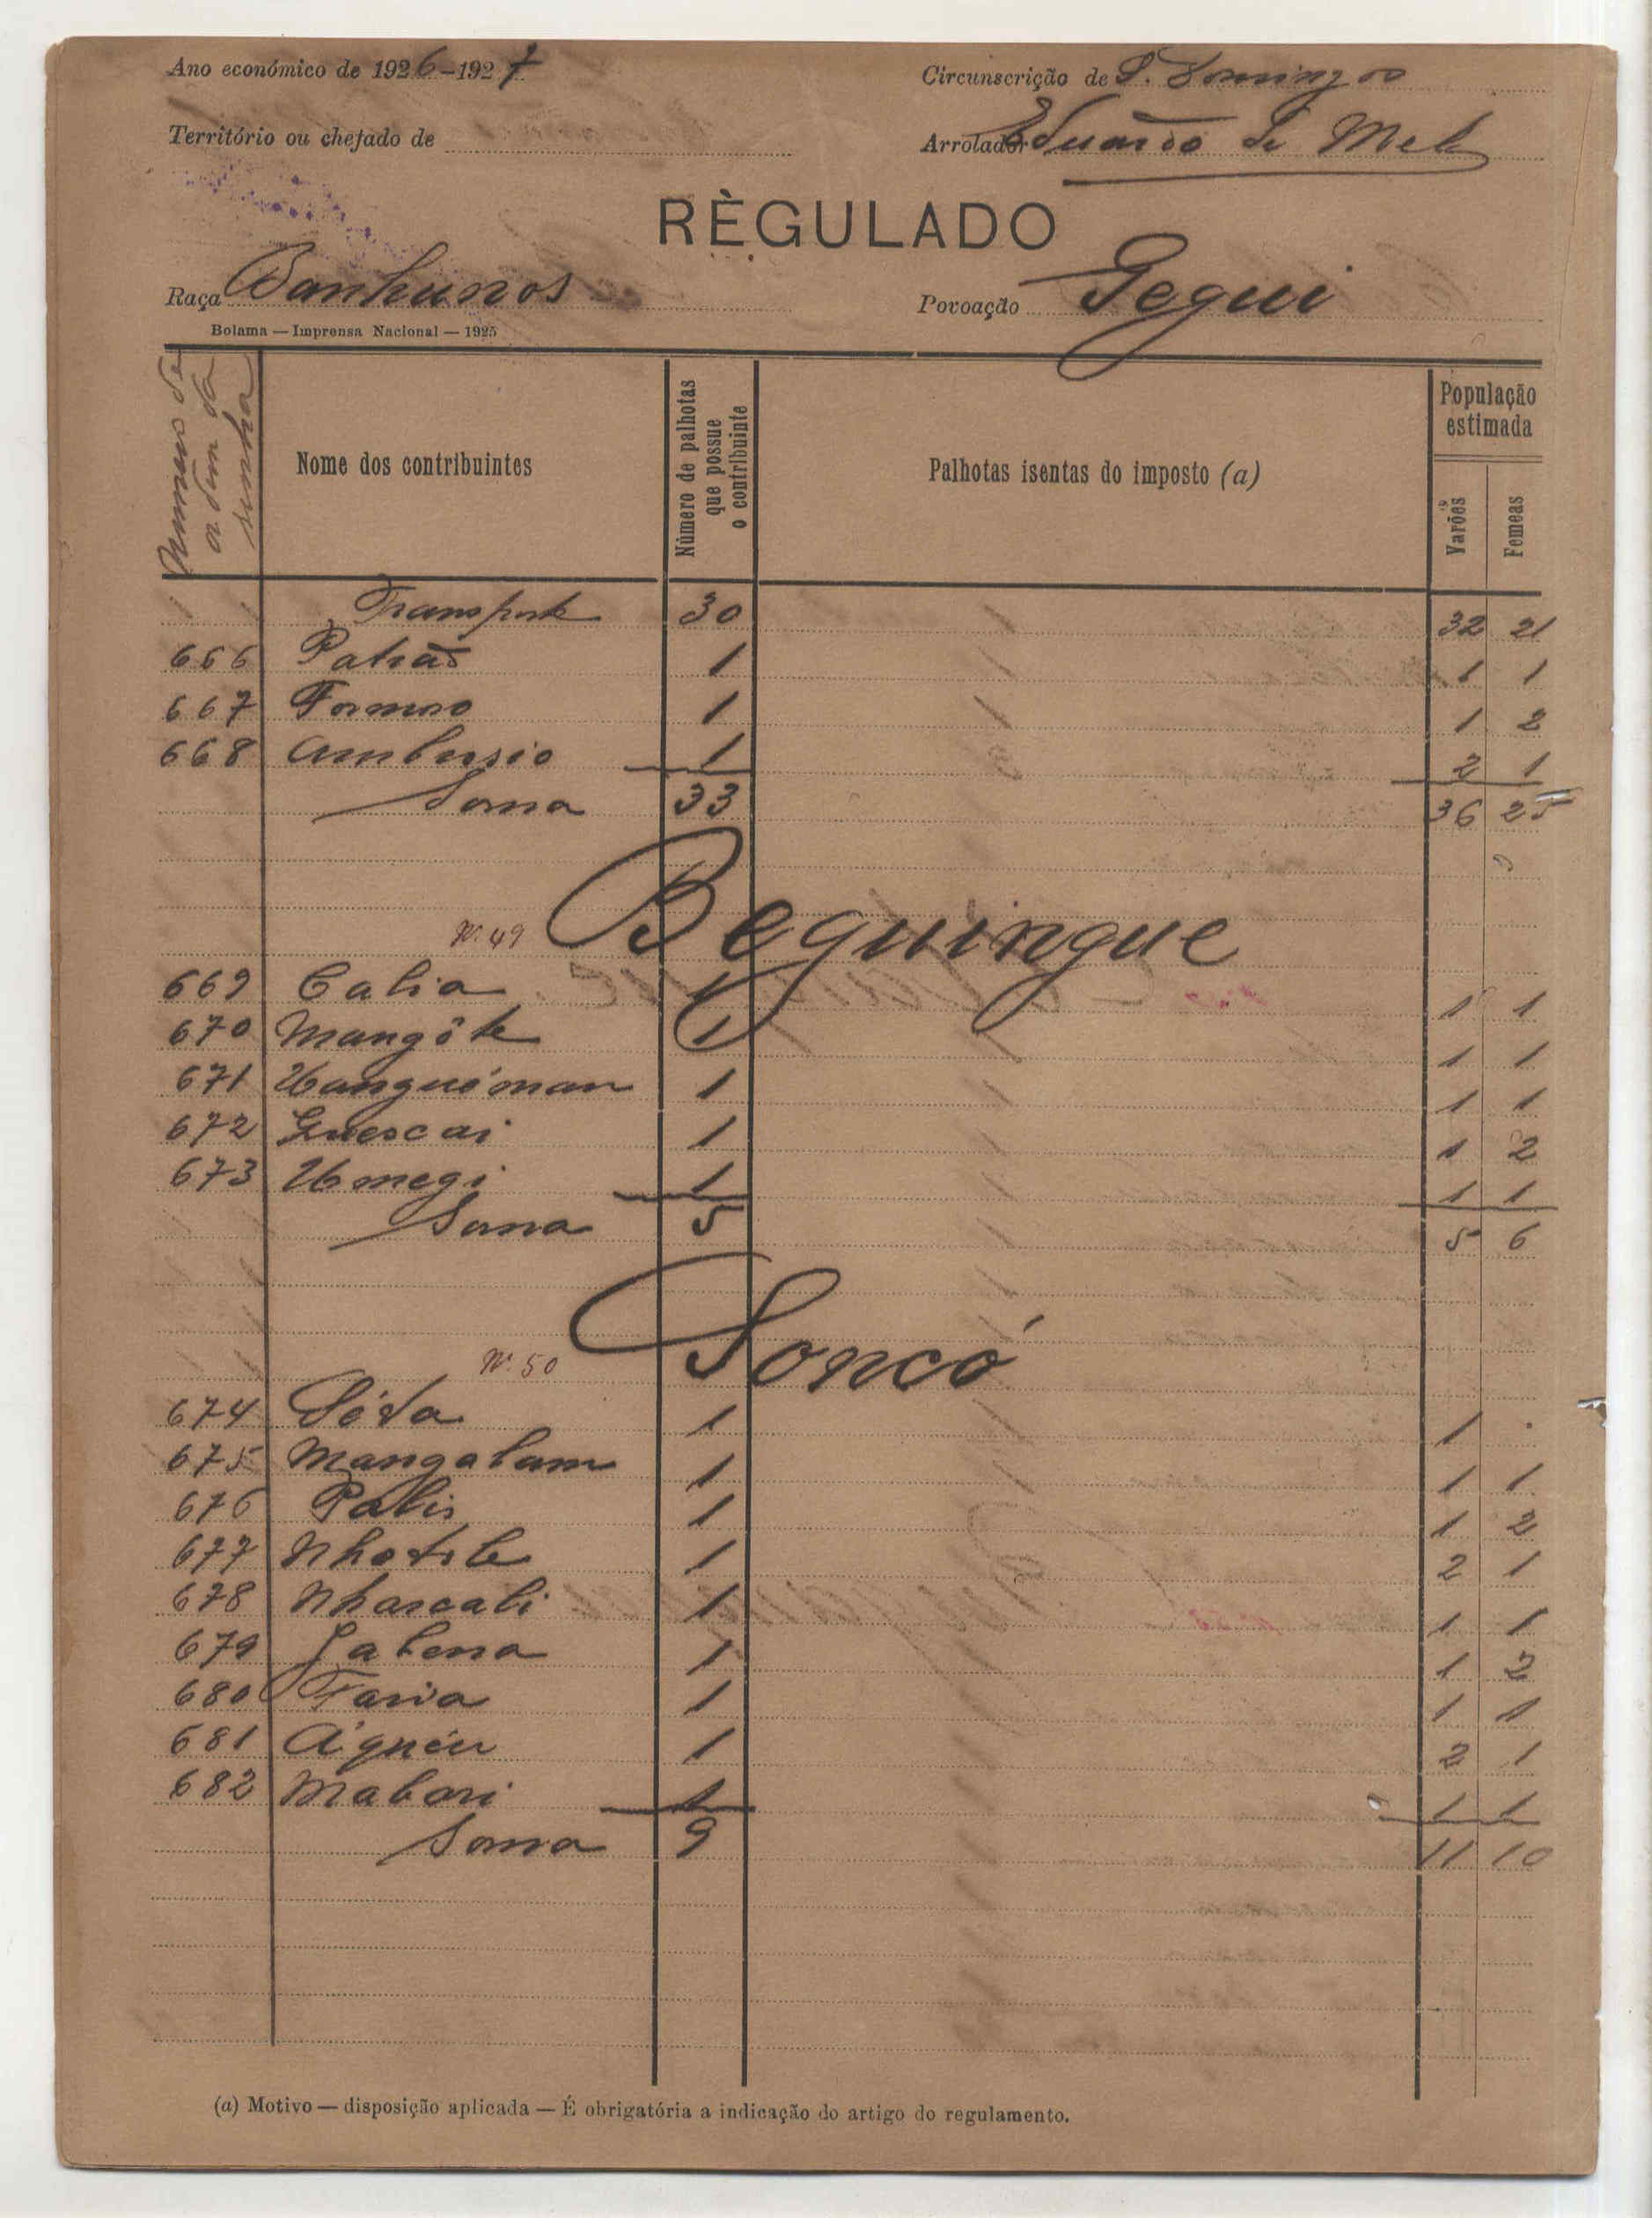 Ano económico de 1926-1927 Circunscrição de S. Domingos
Território ou chefado de Arrolador Eduardo de Melo
RÈGULADO
Raça Banhunos Povoação Gegui
Bolama — Imprensa Nacional — 1925
Numero de ordem da senha
Nome dos contribuintes
Número de palhotas que possue o contribuinte
Palhotas isentas do imposto (a)
População estimada
Varões Femeas
Transporte 30 32 21
666 Patrão 1 1 1
667 Formoso 1 1 2
668 Ambursio 1 2 1
Soma 33 36 25
Nº 49 Beguingue
669 Calia 1 1 1
670 Mangôte 1 1 1
671 Uanguéman 1 1 1
672 Guescai 1 1 2
673 Umegi 1 1 1
Soma 5 5 6
Nº 50 Soncó
674 Séda 1 1 .
675 Mangalam 1 1 1
676 Palis 1 1 2
677 1 2 1
678 Nhascali 1 1 1
679 Jabena 1 1 2
680 Faria 1 1 1
681 1 2 1
682 Mabari 1 1 1
Soma 9 11 10
(a) Motivo — disposição aplicada — É obrigatória a indicação do artigo do regulamento.